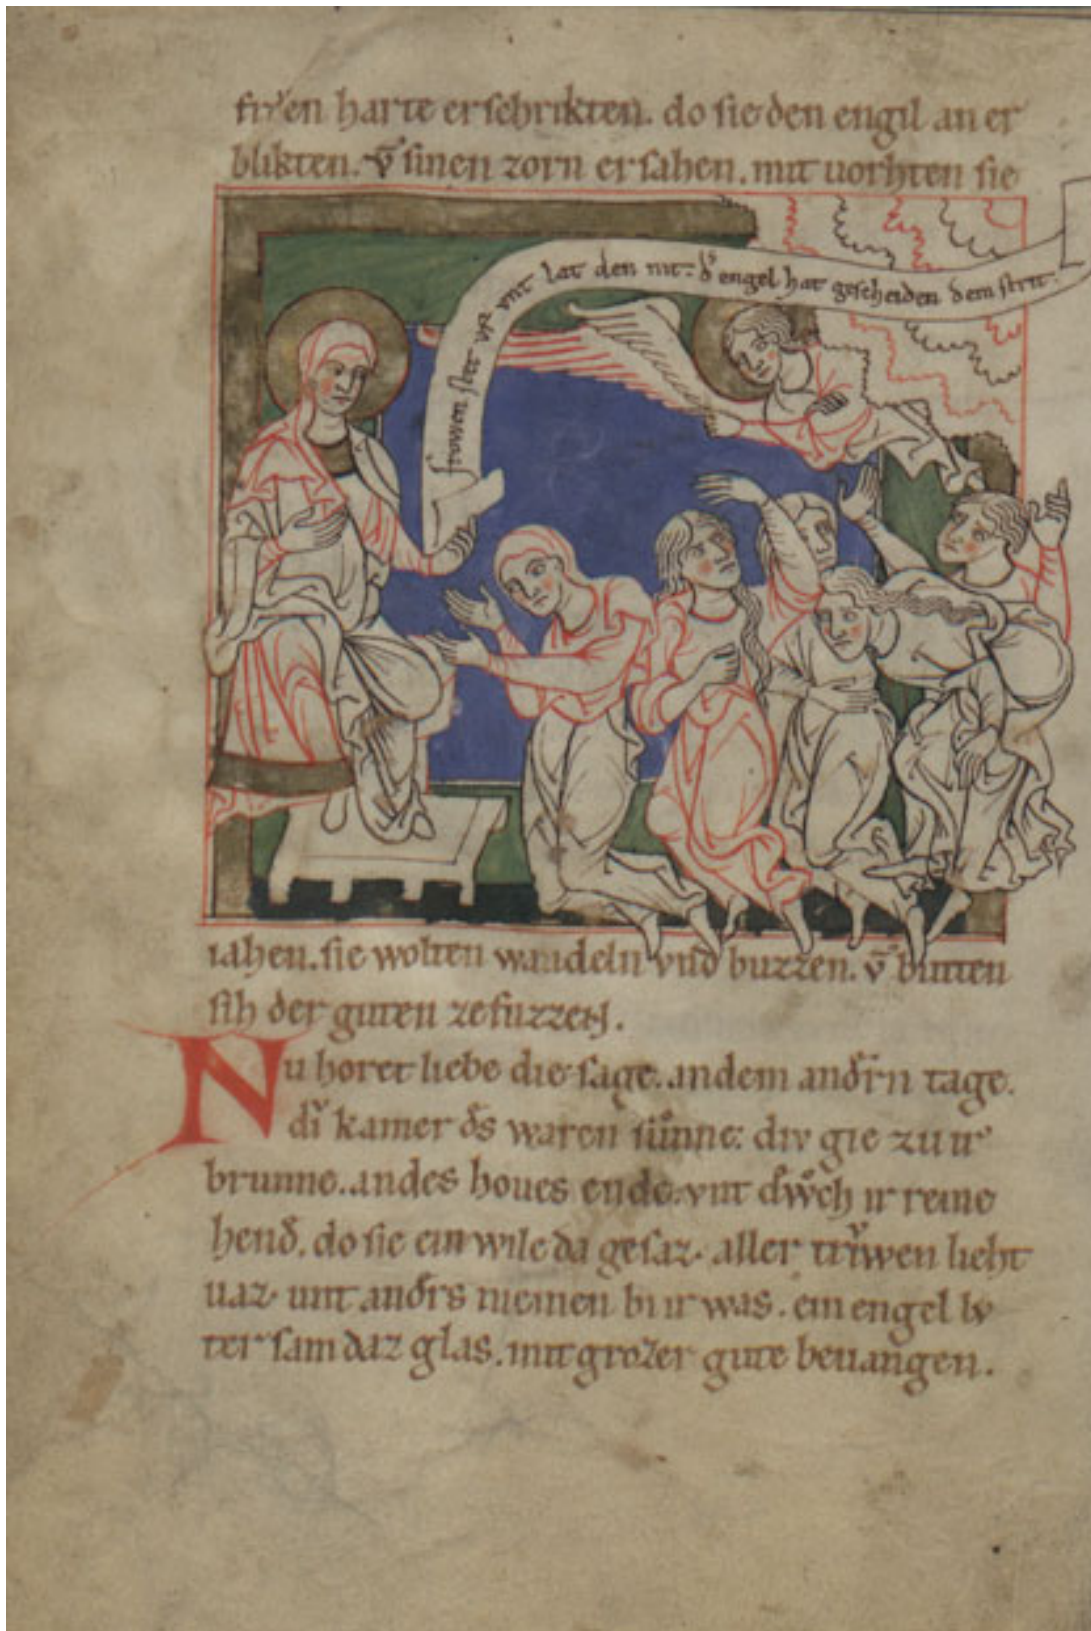 frǒen harte erschrikten. do sie den engil an er
blikten. vn̄ sinen zorn ersahen. mit uorhten sie
frowen stet uf vnt lat den nit. d' engel hat gescheiden den strit.
iahen. sie wolten wandeln vnd buzzen. vn̄ buten
sih der guten ze fuzzen.
Nu horet liebe die sage. an dem andern tage.
kamer waren div gie zu ir
brunne. an des houes ende. vnt ir reine
hend. do sie ein wile da gesaz. aller triwen lieht
uaz. unt anders niemen bi ir was. ein engel lv
ter sam daz glas. mit grozer gute beuangen.